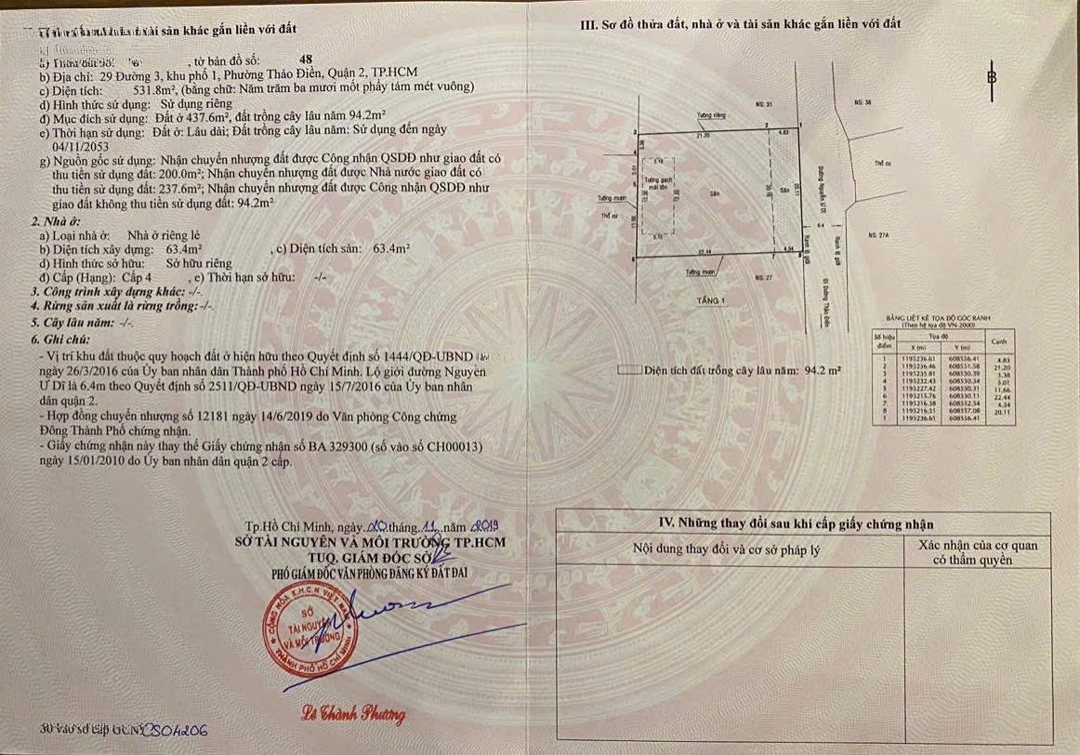 tài sản khác gắn liền với đất
, tờ bản đồ số: 48
b) Địa chỉ: 29 Đường 3, khu phố 1, Phường Thảo Điền, Quận 2, TP.HCM
c) Diện tích: 531.8m², (bằng chữ: Năm trăm ba mươi mốt phẩy tám mét vuông)
d) Hình thức sử dụng: Sử dụng riêng
đ) Mục đích sử dụng: Đất ở 437.6m², đất trồng cây lâu năm 94.2m²
e) Thời hạn sử dụng: Đất ở: Lâu dài; Đất trồng cây lâu năm: Sử dụng đến ngày
04/11/2053
g) Nguồn gốc sử dụng: Nhận chuyển nhượng đất được Công nhận QSDĐ như giao đất có
thu tiền sử dụng đất: 200.0m²; Nhận chuyển nhượng đất được Nhà nước giao đất có
thu tiền sử dụng đất: 237.6m²; Nhận chuyển nhượng đất được Công nhận QSDĐ như
giao đất không thu tiền sử dụng đất: 94.2m²
2. Nhà ở:
a) Loại nhà ở: Nhà ở riêng lẻ
b) Diện tích xây dựng: 63.4m² , c) Diện tích sàn: 63.4m²
d) Hình thức sở hữu: Sở hữu riêng
đ) Cấp (Hạng): Cấp 4 , e) Thời hạn sở hữu: -/-
3. Công trình xây dựng khác: -/-.
4. Rừng sản xuất là rừng trồng: -/-.
5. Cây lâu năm: -/-.
6. Ghi chú:
- Vị trí khu đất thuộc quy hoạch đất ở hiện hữu theo Quyết định số 1444/QĐ-UBND
ngày 26/3/2016 của Ủy ban nhân dân Thành phố Hồ Chí Minh. Lộ giới đường Nguyễn
Ư Dĩ là 6.4m theo Quyết định số 2511/QĐ-UBND ngày 15/7/2016 của Ủy ban nhân
dân quận 2.
- Hợp đồng chuyển nhượng số 12181 ngày 14/6/2019 do Văn phòng Công chứng
Đông Thành Phố chứng nhận.
- Giấy chứng nhận này thay thế Giấy chứng nhận số BA 329300 (số vào sổ CH00013)
ngày 15/01/2010 do Ủy ban nhân dân quận 2 cấp.
Tp.Hồ Chí Minh, ngày 20 tháng 11 năm 2019
SỞ TÀI NGUYÊN VÀ MÔI TRƯỜNG TP.HCM
TUQ. GIÁM ĐỐC SỞ
PHÓ GIÁM ĐỐC VĂN PHÒNG ĐĂNG KÝ ĐẤT ĐAI
CỘNG HÒA X.H.C.N VIỆT NAM
SỞ
TÀI NGUYÊN
VÀ MÔI TRƯỜNG
THÀNH PHỐ HỒ CHÍ MINH
Lê Thành Phương
Số vào sổ cấp GCN: CS04206
III. Sơ đồ thửa đất, nhà ở và tài sản khác gắn liền với đất
B
NS: 31
NS: 36
Tường riêng
21.20
4.83
3
2
1
Thổ cư
Tường gạch
mái tôn
Sân
Sân
20.11
Tường mượn
Thổ cư
Đường Nguyễn Ư Dĩ
6.4
Ranh lộ giới
Ranh lộ giới
NS: 27A
22.44
4.54
Tường mượn
NS: 27
Đi Đường Thảo Điền
TẦNG 1
Diện tích đất trồng cây lâu năm: 94.2 m²
BẢNG LIỆT KÊ TỌA ĐỘ GÓC RANH
(Theo hệ tọa độ VN-2000)
Số hiệu điểm Tọa độ Cạnh
X (m) Y (m)
1 1195236.61 608556.41 4.83
2 1195236.46 608551.58 21.20
3 1195235.81 608530.39 3.38
4 1195232.43 608530.34 5.01
5 1195227.42 608530.31 11.66
6 1195215.76 608530.13 22.44
7 1195216.38 608552.54 4.54
8 1195216.51 608557.08 20.11
1 1195236.61 608556.41
IV. Những thay đổi sau khi cấp giấy chứng nhận
Nội dung thay đổi và cơ sở pháp lý
Xác nhận của cơ quan
có thẩm quyền